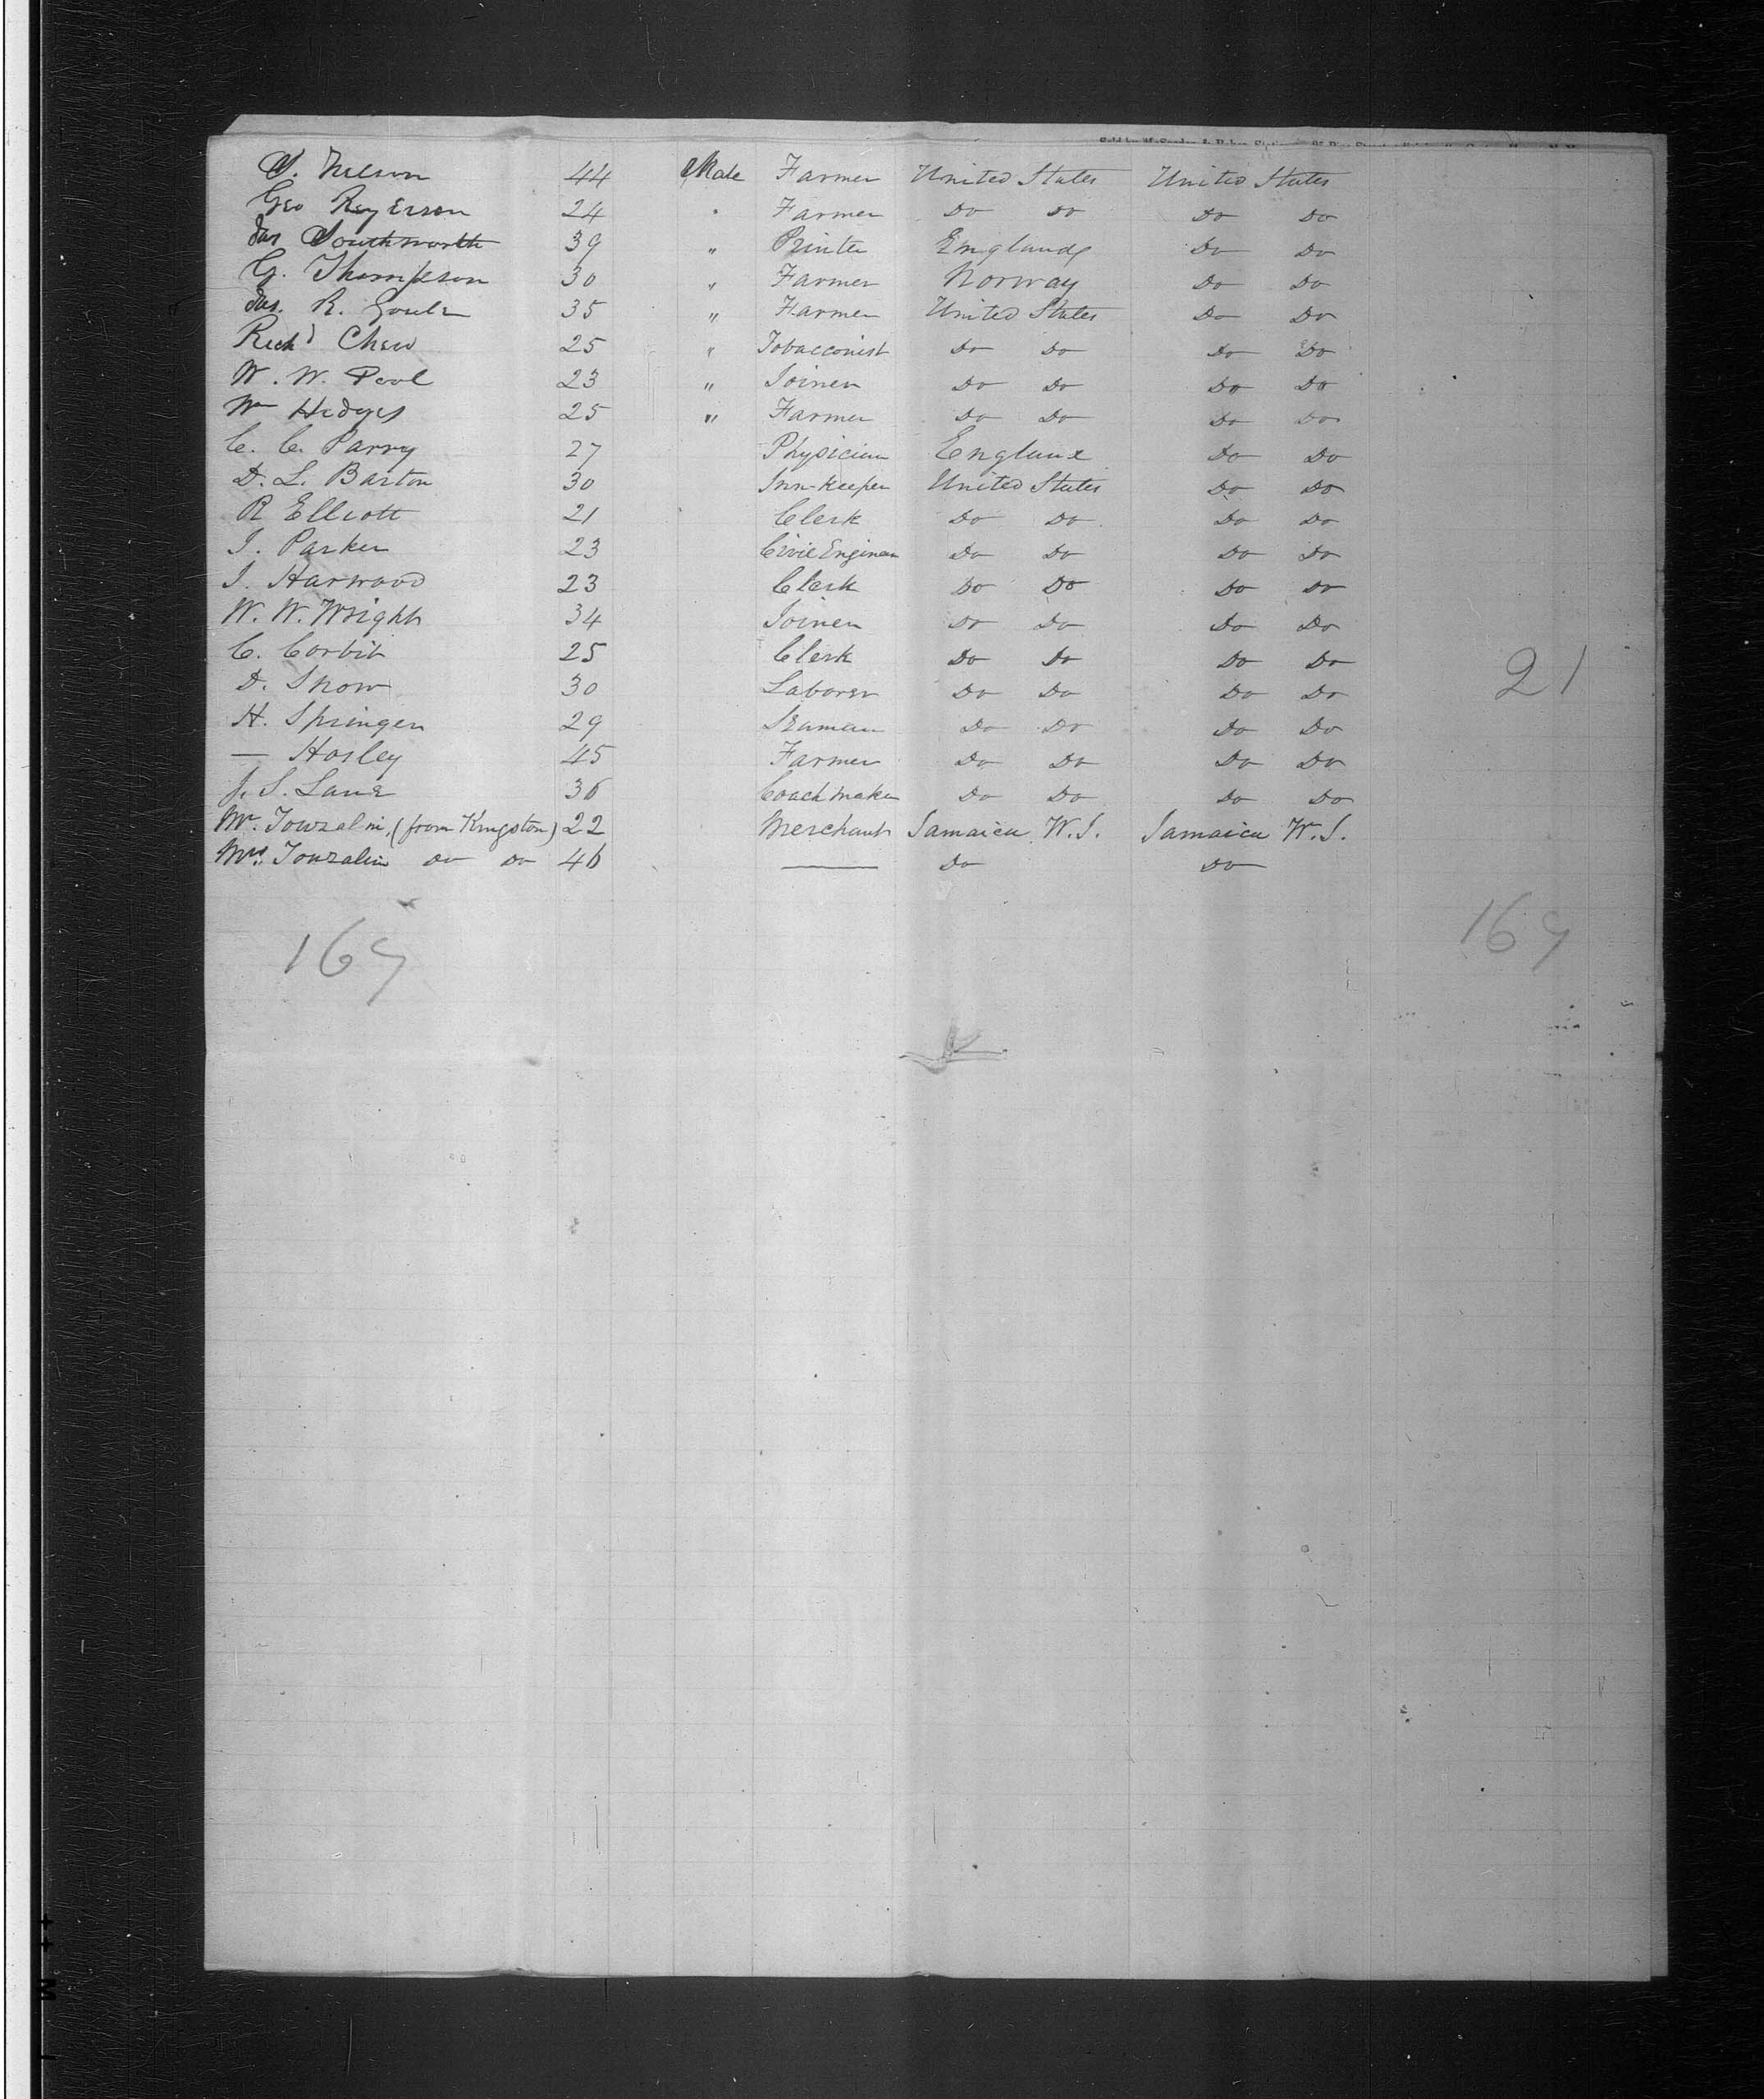 S. Nelson 44 Male Farmer United States United States
Geo Reyerson 24 " Farmer Do Do Do Do
Jas Southworth 39 " Printer England Do Do
G. Thompson 30 " Farmer Norway Do Do
Jas. R. Gould 35 " Farmer United States Do Do
Rich'd Chew 25 " Tobacconist Do Do Do Do
W. W. Pool 23 " Joiner Do Do Do Do
Wm Hedges 25 " Farmer Do Do Do Do
C. C. Parry 27 Physician England Do Do
D. L. Barton 30 Inn-Keeper United States Do Do
R Elliott 21 Clerk Do Do Do Do
J. Parker 23 Civil Engineer Do Do Do Do
J. Harwood 23 Clerk Do Do Do Do
W. W. Wright 34 Joiner Do Do Do Do
C. Corbit 25 Clerk Do Do Do Do
D. Snow 30 Laborer Do Do Do Do
21
H. Springer 29 Seaman Do Do Do Do
— Horley 45 Farmer Do Do Do Do
J. S. Lane 36 Coach maker Do Do Do Do
Mr. Touzalin, (from Kingston) 22 Merchant Jamaica W.I. Jamaica W.I.
Mrs. Touzalin do do 46 — Do Do
169 169